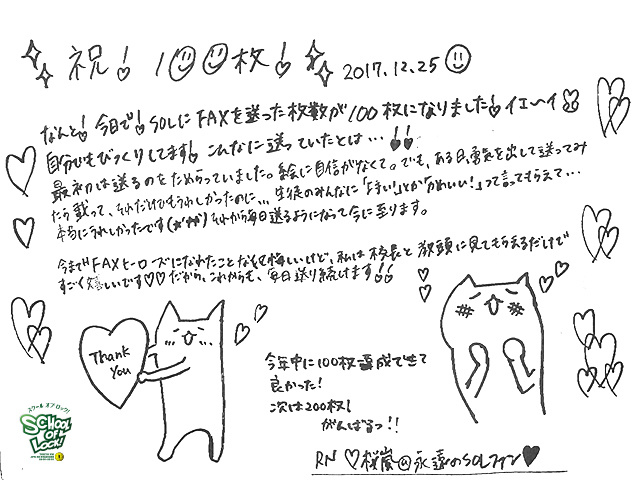 祝！100枚！ 2017.12.25
なんと！今日で！SOLにFAXを送った枚数が100枚になりました！イエーイ
自分でもびっくりしてます！こんなに送っていたとは…！！
最初は送るのをためらっていました。絵に自信がなくて。でも、ある日勇気を出して送ってみ
たら載って、それだけでもうれしかったのに… 生徒のみんなに「うまい！」とか「かわいい！」って言ってもらえて…
本当にうれしかったです それから毎日送るようになって今に至ります。
今までFAXヒーローズになれたことなくて悔しいけど、私は校長と教頭に見てもらえるだけで
すごく嬉しいです♡♡だから、これからも、毎日送り続けます！！
Thank
You
今年中に100枚達成できて
良かった！
次は200枚！
がんばるっ！！
RN ♡桜嵐@永遠のSOLファン♥
スクール オブ ロック！
SCHOOL
OF
LOCK!